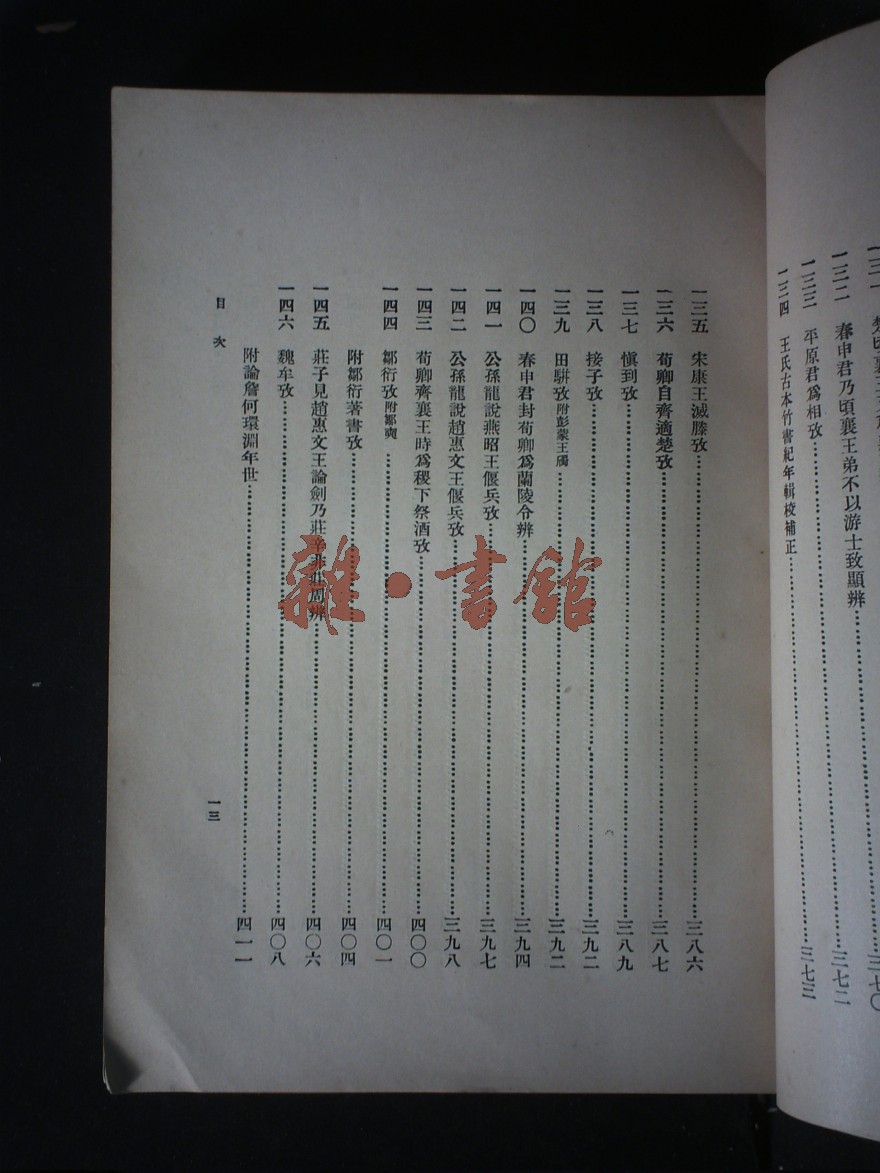 春申君乃頃襄王弟不以游士致顯辨……三七二
一三三 平原君爲相攷……三七三
一三四 王氏古本竹書紀年輯校補正……
一三五 宋康王滅滕攷……三八六
一三六 荀卿自齊適楚攷……三八七
一三七 愼到攷……三八九
一三八 接子攷……三九二
一三九 田駢攷附彭蒙王斶……三九二
一四〇 春申君封荀卿爲蘭陵令辨……三九四
一四一 公孫龍說燕昭王偃兵攷……三九七
一四二 公孫龍說趙惠文王偃兵攷……三九八
一四三 荀卿齊襄王時爲稷下祭酒攷……四〇〇
一四四 鄒衍攷附鄒奭……四〇一
附鄒衍著書攷……四〇四
一四五 莊子見趙惠文王論劍乃莊辛非莊周辨……四〇六
一四六 魏牟攷……四〇八
附論詹何環淵年世……四一一
目次
一三
雜·書館